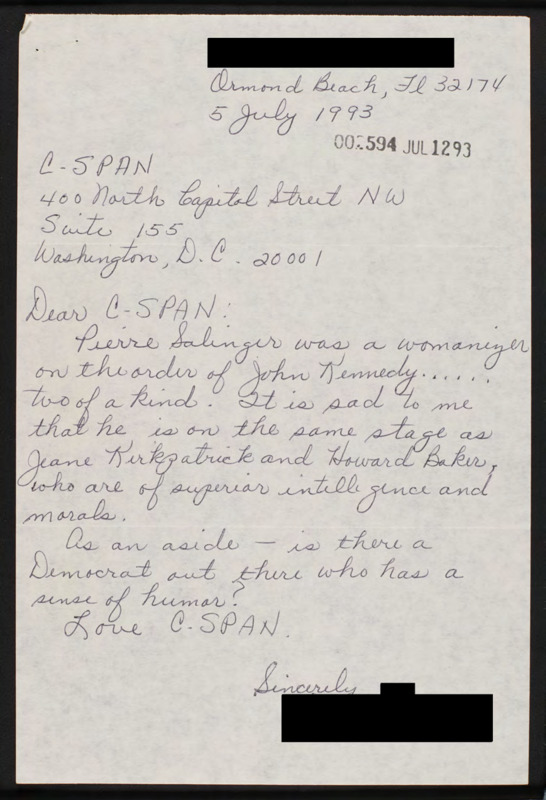 Ormond Beach, Fl 32174
5 July 1993
002594 JUL1293
C-SPAN
400 North Capitol Street NW
Suite 155
Washington, D.C. 20001
Dear C-SPAN:
Pierre Salinger was a womanizer
on the order of John Kennedy......
two of a kind. It is sad to me
that he is on the same stage as
Jeane Kirkpatrick and Howard Baker,
who are of superior intelligence and
morals.
As an aside — is there a
Democrat out there who has a
sense of humor?
Love C-SPAN.
Sincerely